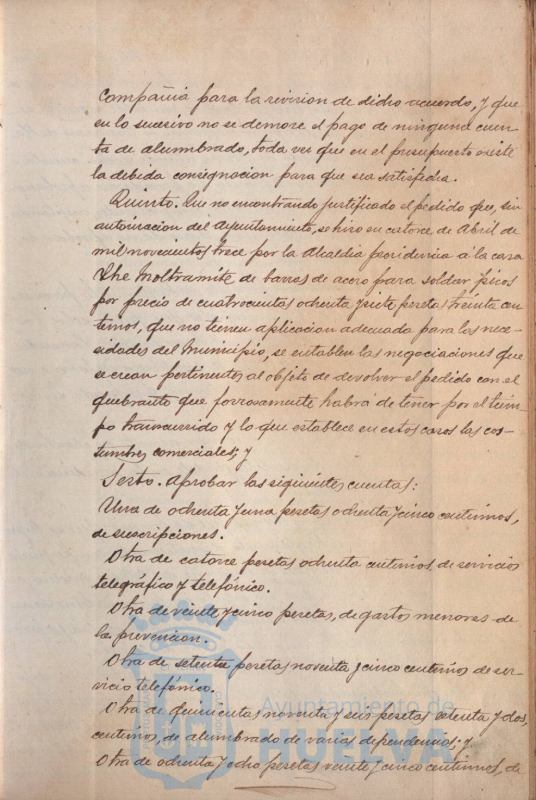 Compañia para la revision de dicho acuerdo, y que
en lo sucesivo no se demore el pago de ninguna cuen-
ta de alumbrado, toda vez que en el presupuesto existe
la debida consignacion para que sea satisfecha.
Quinto. Que no encontrando justificado el pedido que, sin
autorizacion del Ayuntamiento, se hizo en catorce de Abril de
mil novecientos trece por la Alcaldia providencia á la casa
The Moltramite de barras de acero para soldar picos
por precio de cuatrocientas ochenta y siete pesetas treinta cen-
timos, que no tienen aplicacion adecuada para las nece-
sidades del Municipio, se entablen las negociaciones que
se crean pertinentes al objeto de devolver el pedido con el
quebranto que forzosamente habrá de tener por el tiem-
po transcurrido y lo que establece en estos casos las cos-
tumbres comerciales; y
Sexto. Aprobar las siguientes cuentas:
Una de ochenta y una pesetas ochenta y cinco centimos,
de suscripciones.
Otra de catorce pesetas ochenta centimos, de servicios
telegráfico y telefónico.
Otra de veinte y cinco pesetas, de gastos menores de
la prevencion.
Otra de setenta pesetas noventa y cinco centimos de ser-
vicio telefónico.
Otra de quinientas noventa y seis pesetas setenta y dos,
centimos, de alumbrado de varias dependencias; y
Otra de ochenta y ocho pesetas veinte y cinco centimos, de
Ayuntamiento de
HUELVA